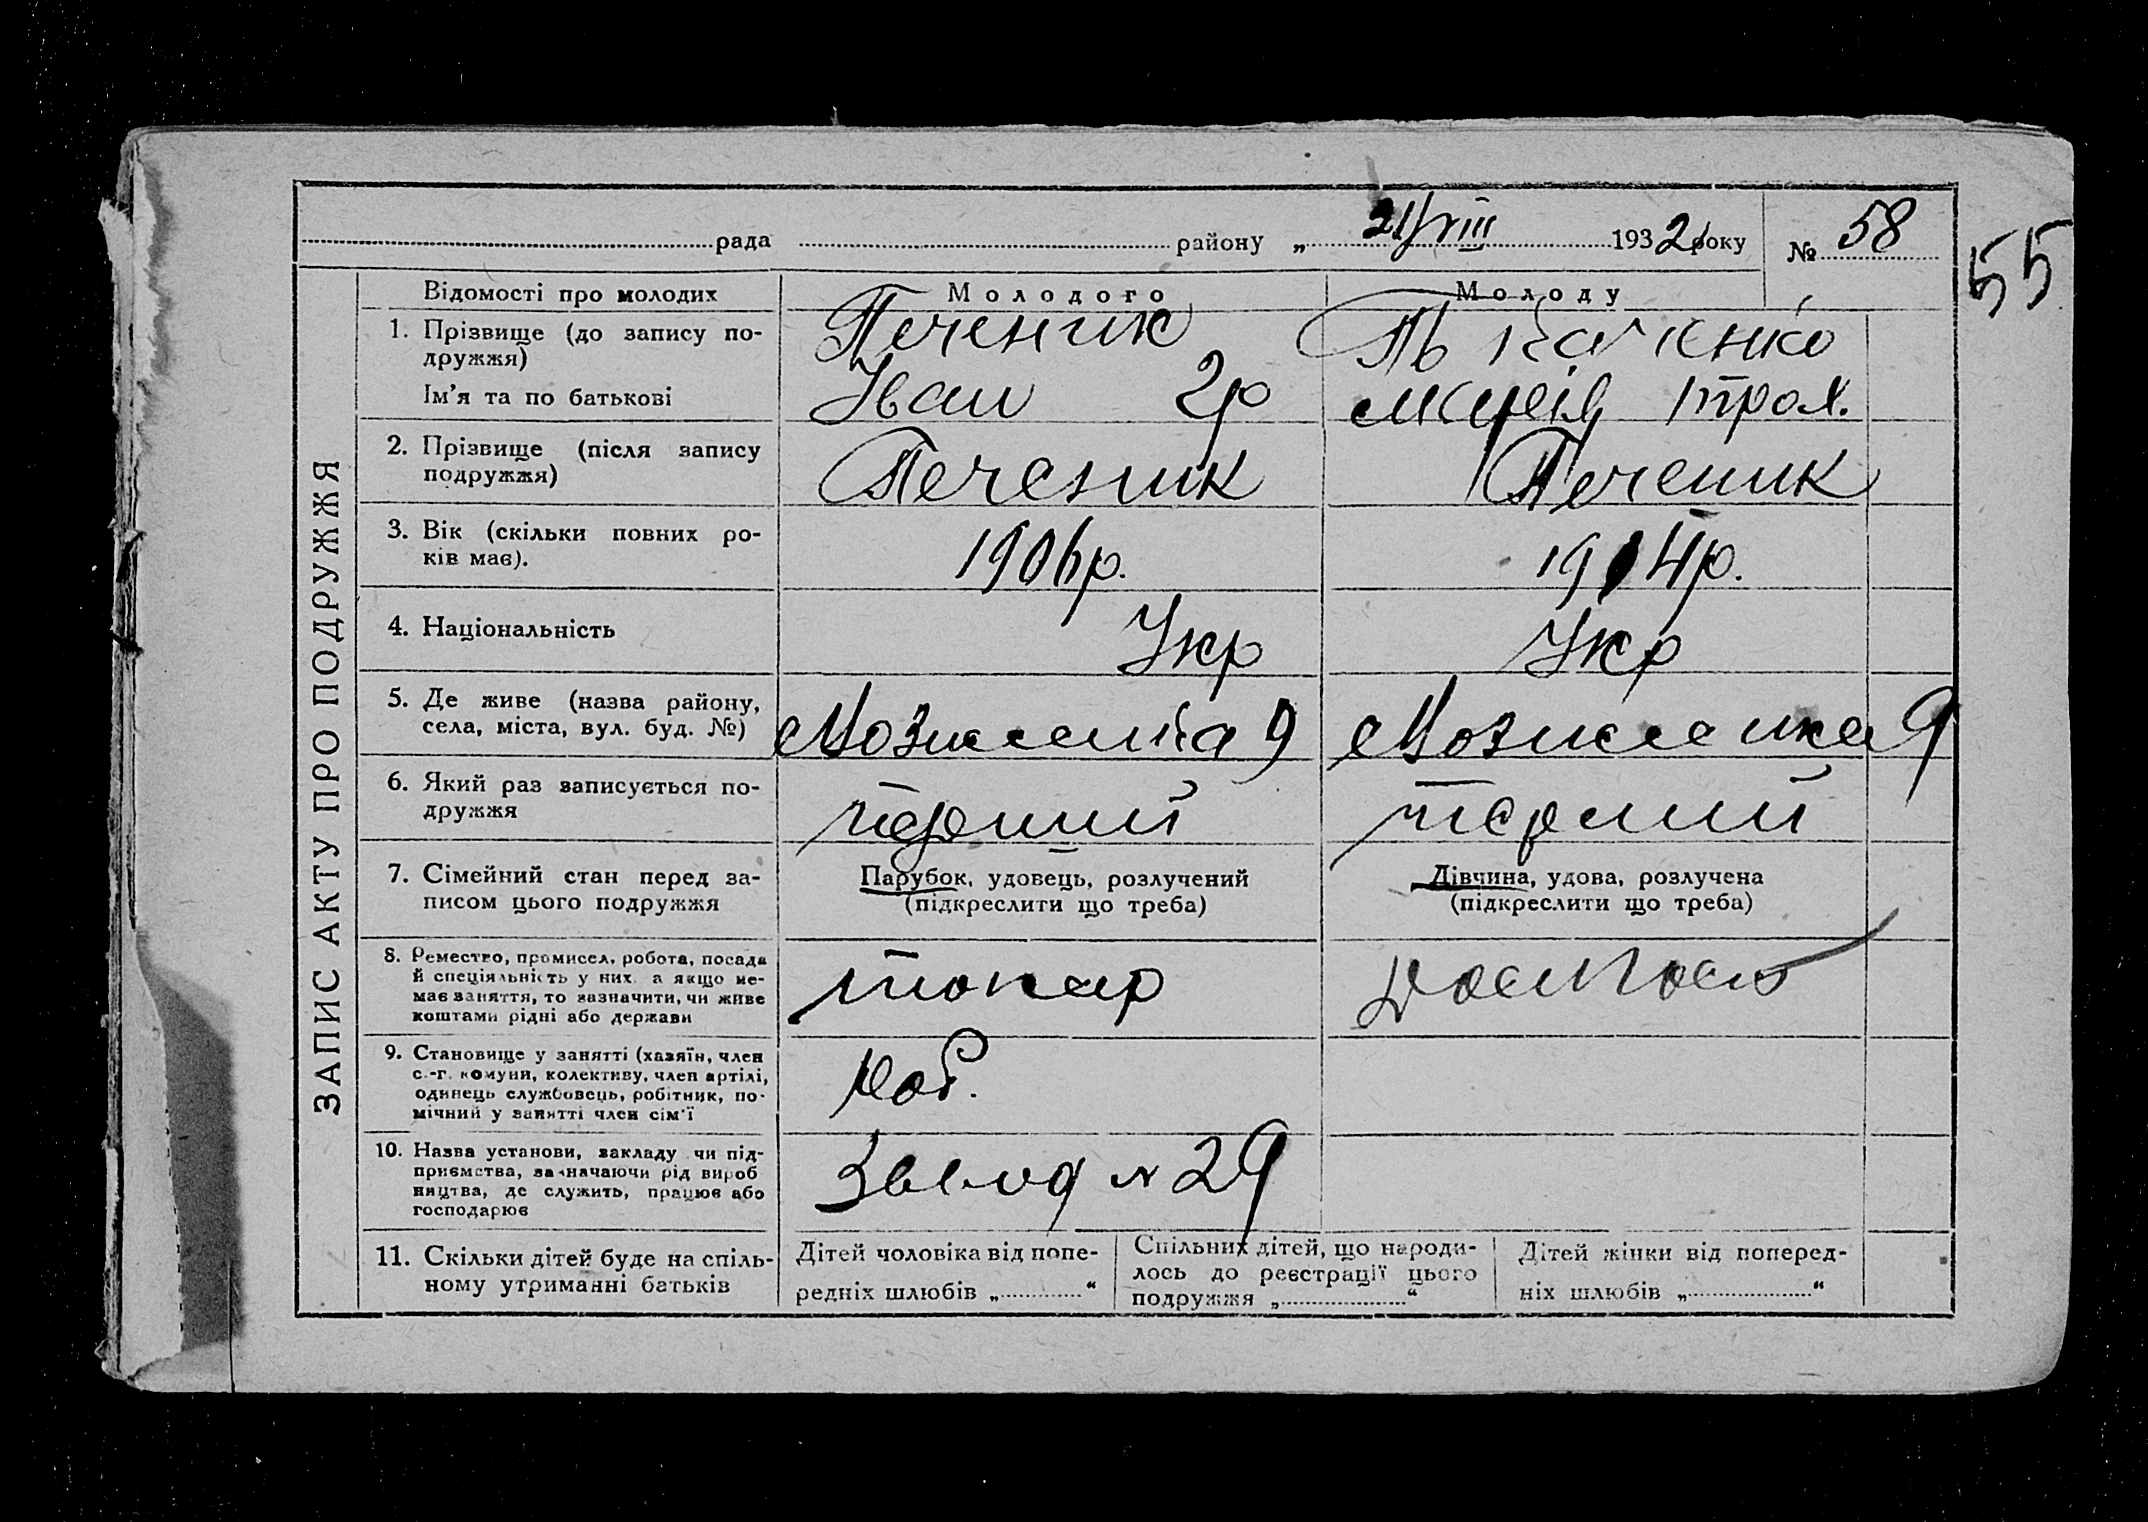 рада району „ 21/VIII 1932 року № 58
55
ЗАПИС АКТУ ПРО ПОДРУЖЖЯ
Відомості про молодих
Молодого
Молоду
1. Прізвище (до запису по-
дружжя)
Ім'я та по батькові
Печеник
Іван Гр
2. Прізвище (після запису
подружжя)
Печеник
Печеник
3. Вік (скільки повних ро-
ків має).
1906р.
1914р.
4. Національність
Укр
Укр
5. Де живе (назва району,
села, міста, вул. буд. №)
9
9
6. Який раз записується по-
дружжя
перший
перший
7. Сімейний стан перед за-
писом цього подружжя
Парубок, удовець, розлучений
(підкреслити що треба)
Дівчина, удова, розлучена
(підкреслити що треба)
8. Ремество, промисел, робота, посада
й спеціяльність у них, а якщо не-
має заняття, то зазначити, чи живе
коштами рідні або держави
токар
9. Становище у занятті (хазяїн, член
с.-г. комуни, колективу, член артілі,
одинець службовець, робітник, по-
мічний у занятті член сім'ї
роб.
10. Назва установи, закладу чи під-
приємства, зазначаючи рід вироб
ництва, де служить, працює або
господарює
Завод № 29
11. Скільки дітей буде на спіль-
ному утриманні батьків
Дітей чоловіка від попе-
редніх шлюбів „ “
Спільних дітей, що народи-
лось до реєстрації цього
подружжя „ “
Дітей жінки від поперед-
ніх шлюбів „ “